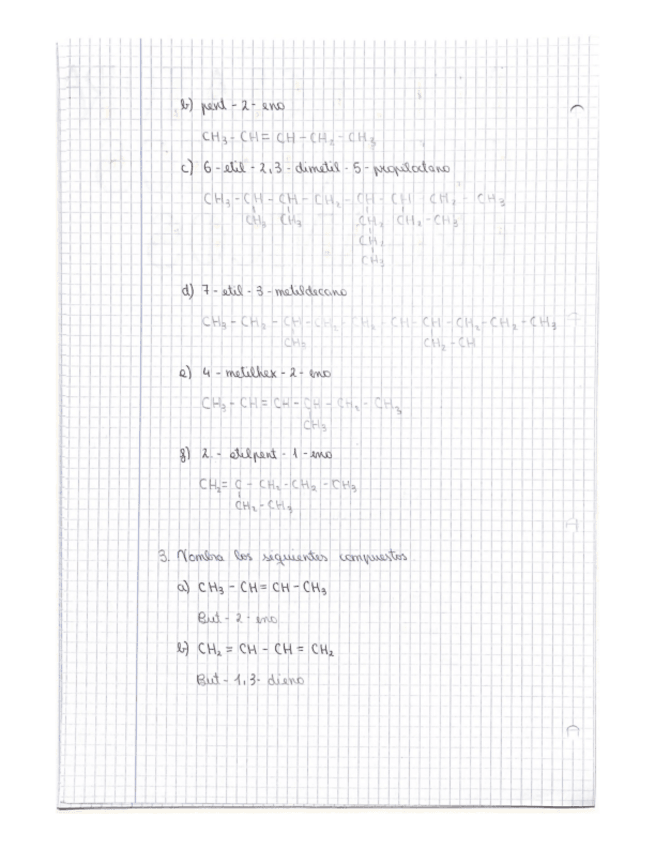 b) pent - 2 - eno
CH₃ - CH = CH - CH₂ - CH₃
c) 6 - etil - 2,3 - dimetil - 5 - propiloctano
CH₃ - CH - CH - CH₂ - CH - CH - CH₂ - CH₃
CH₃ CH₃ CH₂ CH₂ - CH₃
CH₂
CH₃
d) 7 - etil - 3 - metildecano
CH₃ - CH₂ - CH - CH₂ - CH₂ - CH - CH - CH₂ - CH₂ - CH₃
CH₃ CH₂ - CH
e) 4 - metilhex - 2 - eno
CH₃ - CH = CH - CH - CH₂ - CH₃
CH₃
f) 2 - etilpent - 1 - eno
CH₂ = C - CH₂ - CH₂ - CH₃
CH₂ - CH₃
3. Nombra los siguientes compuestos
a) CH₃ - CH = CH - CH₃
But - 2 - eno
b) CH₂ = CH - CH = CH₂
But - 1,3 - dieno